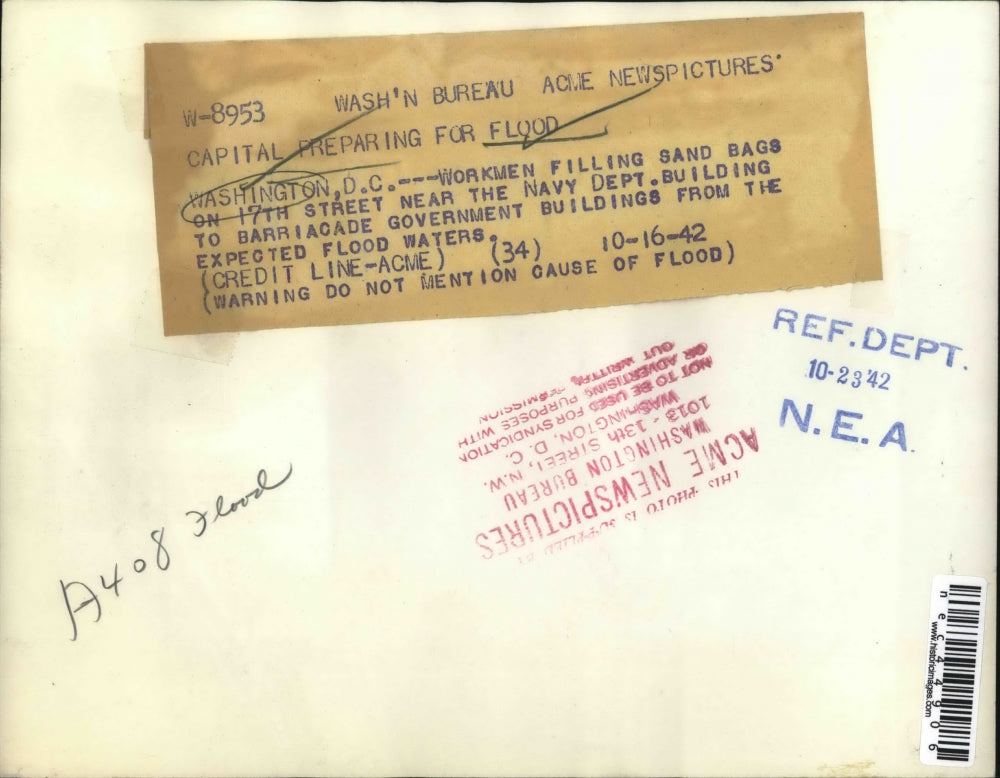 W-8953 WASH'N BUREAU ACME NEWSPICTURES
CAPITAL PREPARING FOR FLOOD
WASHINGTON, D.C.---WORKMEN FILLING SAND BAGS
ON 17TH STREET NEAR THE NAVY DEPT.BUILDING
TO BARRIACADE GOVERNMENT BUILDINGS FROM THE
EXPECTED FLOOD WATERS.
(CREDIT LINE-ACME) (34) 10-16-42
(WARNING DO NOT MENTION CAUSE OF FLOOD)
REF. DEPT.
10-23'42
N.E.A.
THIS PHOTO IS SUPPLIED BY
ACME NEWSPICTURES
WASHINGTON BUREAU
1013 - 13th STREET, N.W.
WASHINGTON, D. C.
NOT TO BE USED FOR SYNDICATION
OR ADVERTISING PURPOSES WITH
OUT WRITTEN PERMISSION
A408 Flood
nec44906
www.historicimages.com